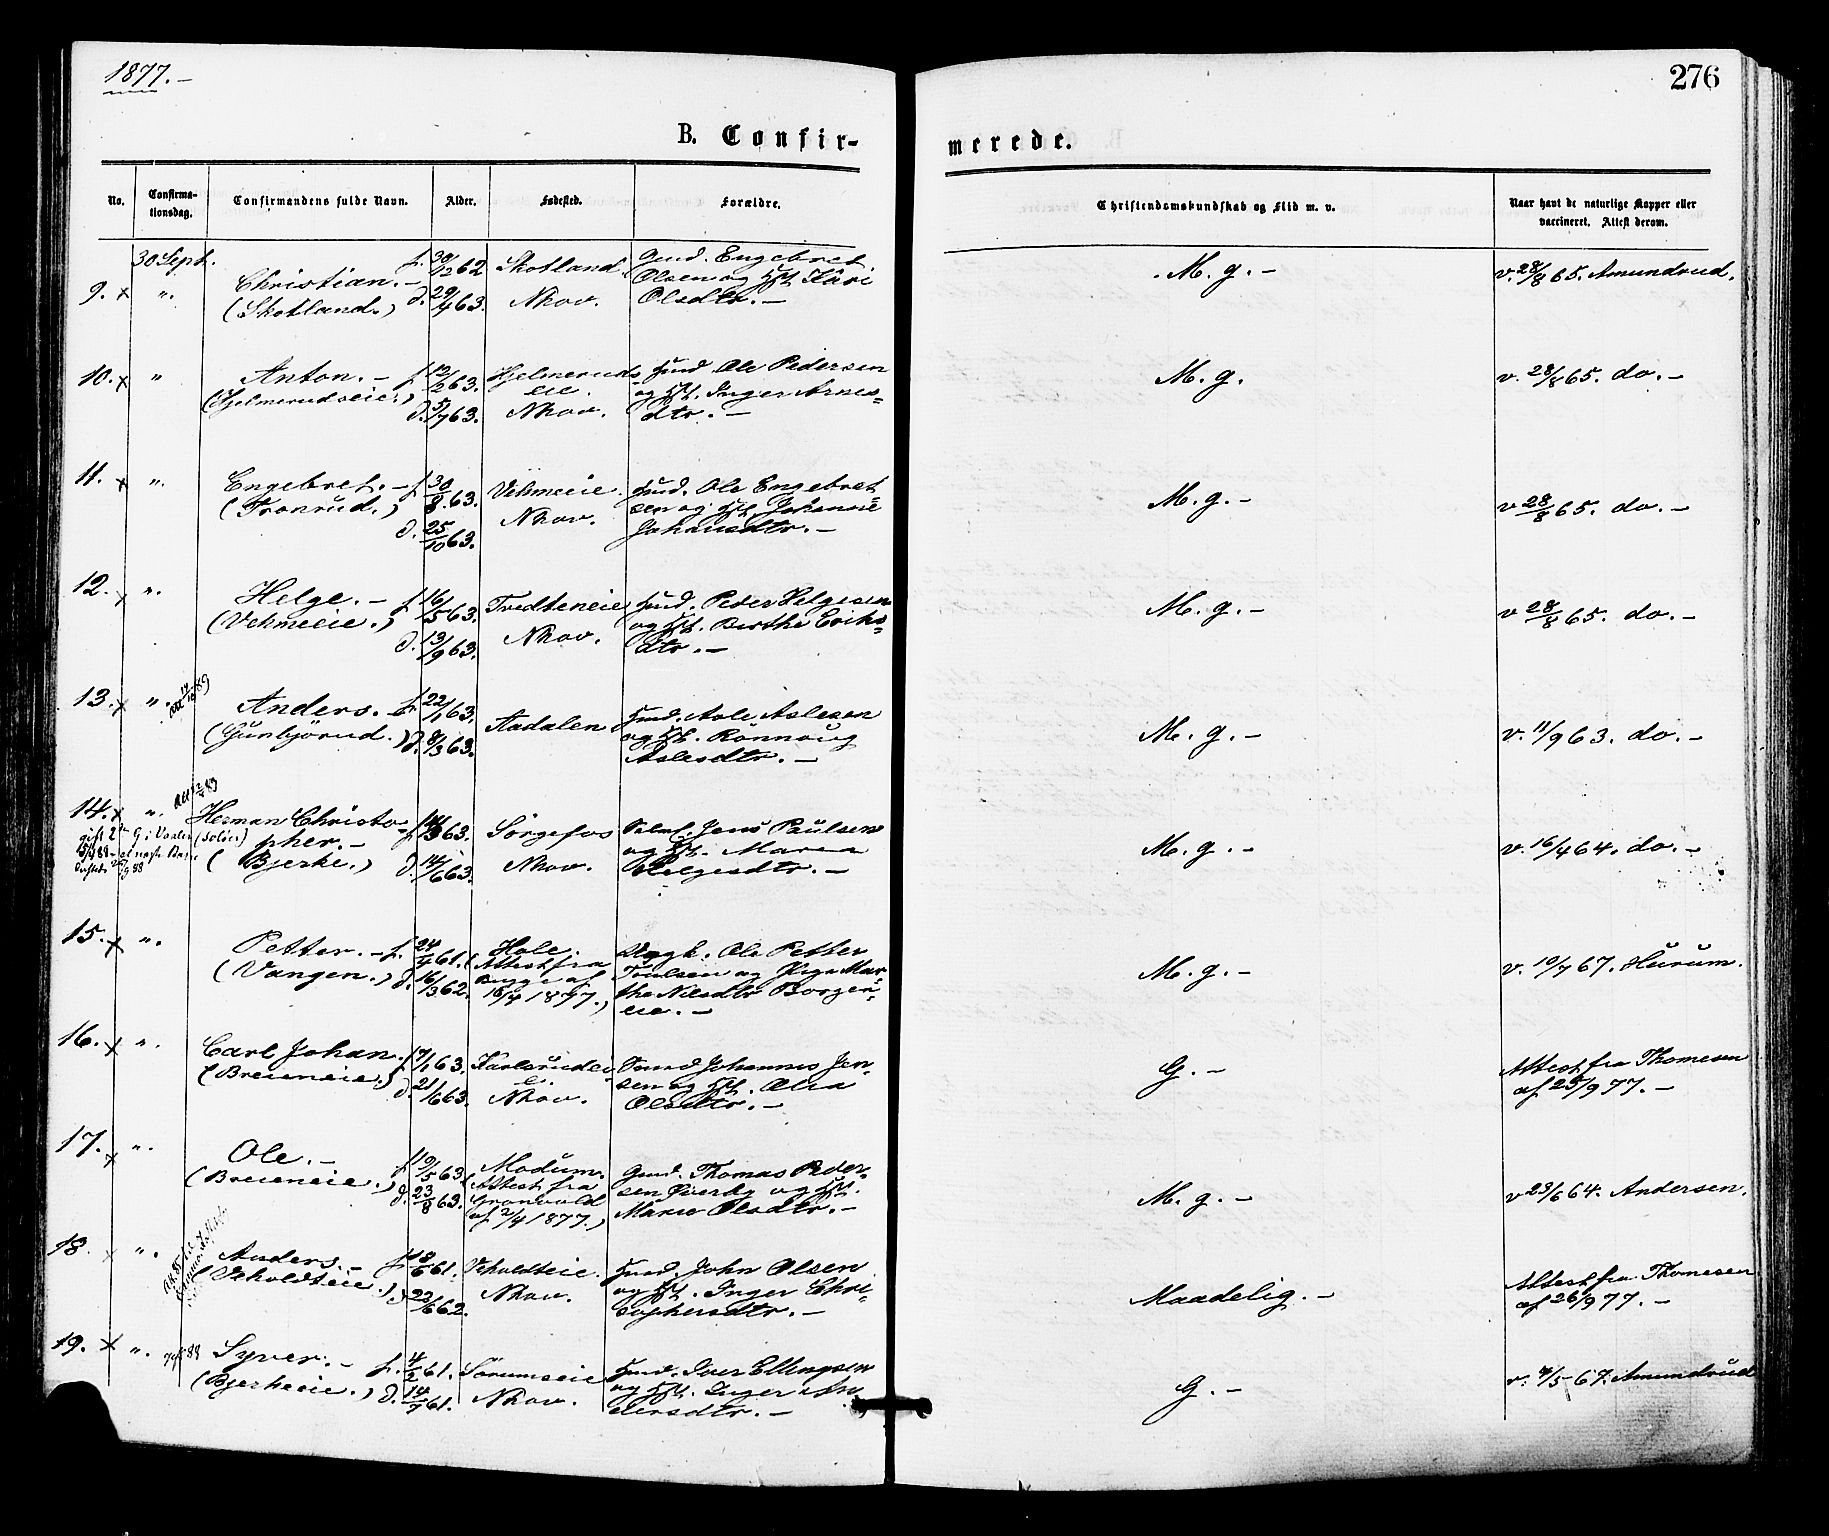 1877.-
276
B. Confir-
merede.
No.
Confirma-
tionsdag.
Confirmandens fulde Navn.
Alder.
Fødested.
Forældre.
Christendomskundskab og Flid m. v.
Naar havt de naturlige Kopper eller
vaccineret. Attest derom.
30 Sept.
9. x ". Christian.- (Skotland.) f. 30/12 62 d. 29/4 63. Skotland Nhov. Gmd. Engebret
Olsen og Hst. Kari
Olsdtr.-
M. g.-
v. 28/8 65. Amundrud.
10. x " Anton.- f. 12/2 63. d. 5/7 63. Hjelmeruds
eie. Nhov.
Hmd. Ole Pedersen
og Hst. Inger Arnes-
dtr.-
M. g.
v. 28/8 65. do.-
11. x ". Engebret.- (Tronrud.) f. 30/8 63. d. 25/10 63. Vehmeeie. Nhov.
Hmd. Ole Engebret-
sen og Hst. Johanne
Johansdtr.-
M. g.-
v 28/8 65. do.-
12. x ". Helge.- (Vehmeeie.) f. 16/5 63. d. 13/9 63. Tredteneie Nhov.
Hmd. Peder Helgesen
og Hst. Berthe Eriks-
dtr.-
M. g.-
v 28/8 65. do.-
13. x ". Anders.- (Gunbjörud.) f. 22/1 63. d. 8/3 63. Aadalen
Hmd. Asle Aslesen
og Hst. Rönnoug
Aslesdtr.-
M. g.-
v. 11/9 63. do.-
14. x ". Herman Christo-
pher.-
(Bjerke.) d. 14/6 63. Sørgefos
Nhov.
Jens Paulsen
og Hst. Maren
Helgesdtr.-
M. g.-
v. 16/4 64. do.-
15. x ". Petter.- (Vangen.) f. 24/4 61. d. 16/3 62. Hole.
(Attest fra
Bugge af
18/4 1877.)
Ole Petter
og Pige Mar-
the Nilsdtr Borgen-
eie.-
M. g.-
v. 10/7 67. Hurum.
16. x ". Carl Johan. (Breieneie.) f. 17/1 63. d. 21/6 63. Nhov.
Johannes Jen-
sen og Hst. Olea
Olsdtr.-
G.-
Attest fra Thomesen
af 25/9 77.-
17. x ". Ole.- (Breieneie.) f. 19/5 63 d. 23/8 63. Modum.
(Attest fra
Grønvold
af 2/4 1877.)
Gmd. Thomas Peder-
sen og Hst.
Marie Olsdtr.-
M. g.-
v 23/6 64. Andersen.
18. x ". Anders.- (Veholdteie.) f. 18/6 61. d. 22/6 62. Veholdteie. Nhov.
Hmd. John Olsen
og Hst. Inger Chri-
sophersdtr.-
Maadelig.-
Attest fra Thomesen
af 26/9 77.-
19. x ". Syver.- (Bjerkeeie.) f. 4/2 61. d. 14/7 61. Sørumseie Nhov.
Hmd. Iver Ellingsen
og Hst. Inger An-
dersdtr.-
G.-
v. 4/5-67. Amundrud